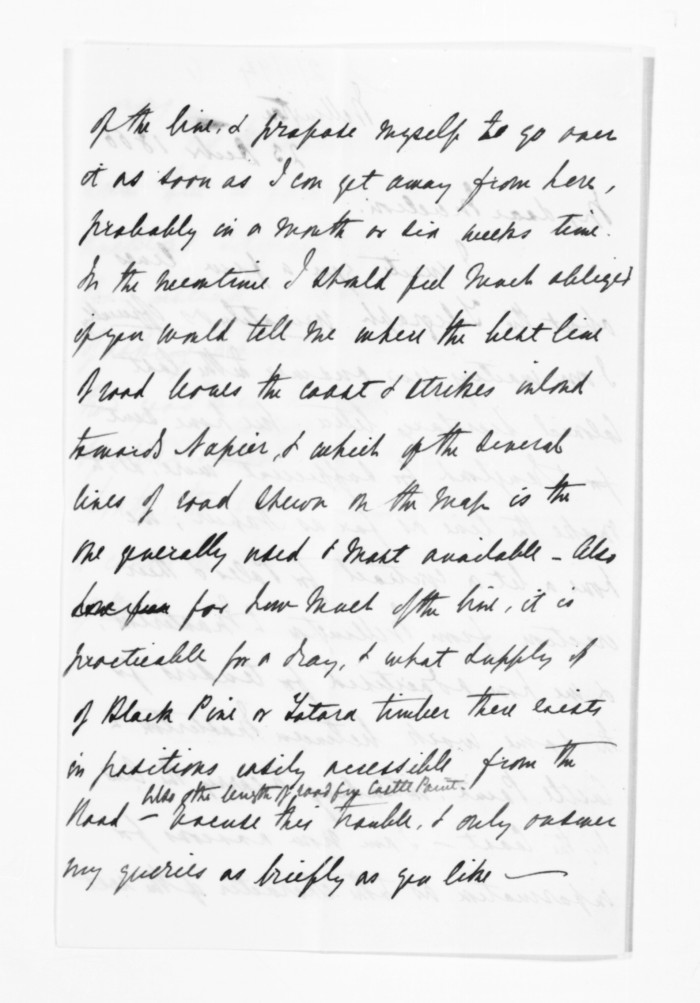 of the line, & propose myself to go over
it as soon as I can get away from here,
probably in a month or six weeks time.
In the meantime I should feel much obliged
if you would tell me where the best line
of road leaves the coast & strikes inland
towards Napier, & which of the several
lines of road shewn on the map is the
one generally used & most available - Also
for how much of the line, it is
practicable for a dray, & what supply of
of Black Pine or Totara timber there exists
in positions easily accessible from the
Also the length of road fr Castle Point.
Road - excuse this trouble, & only answer
my queries as briefly as you like —